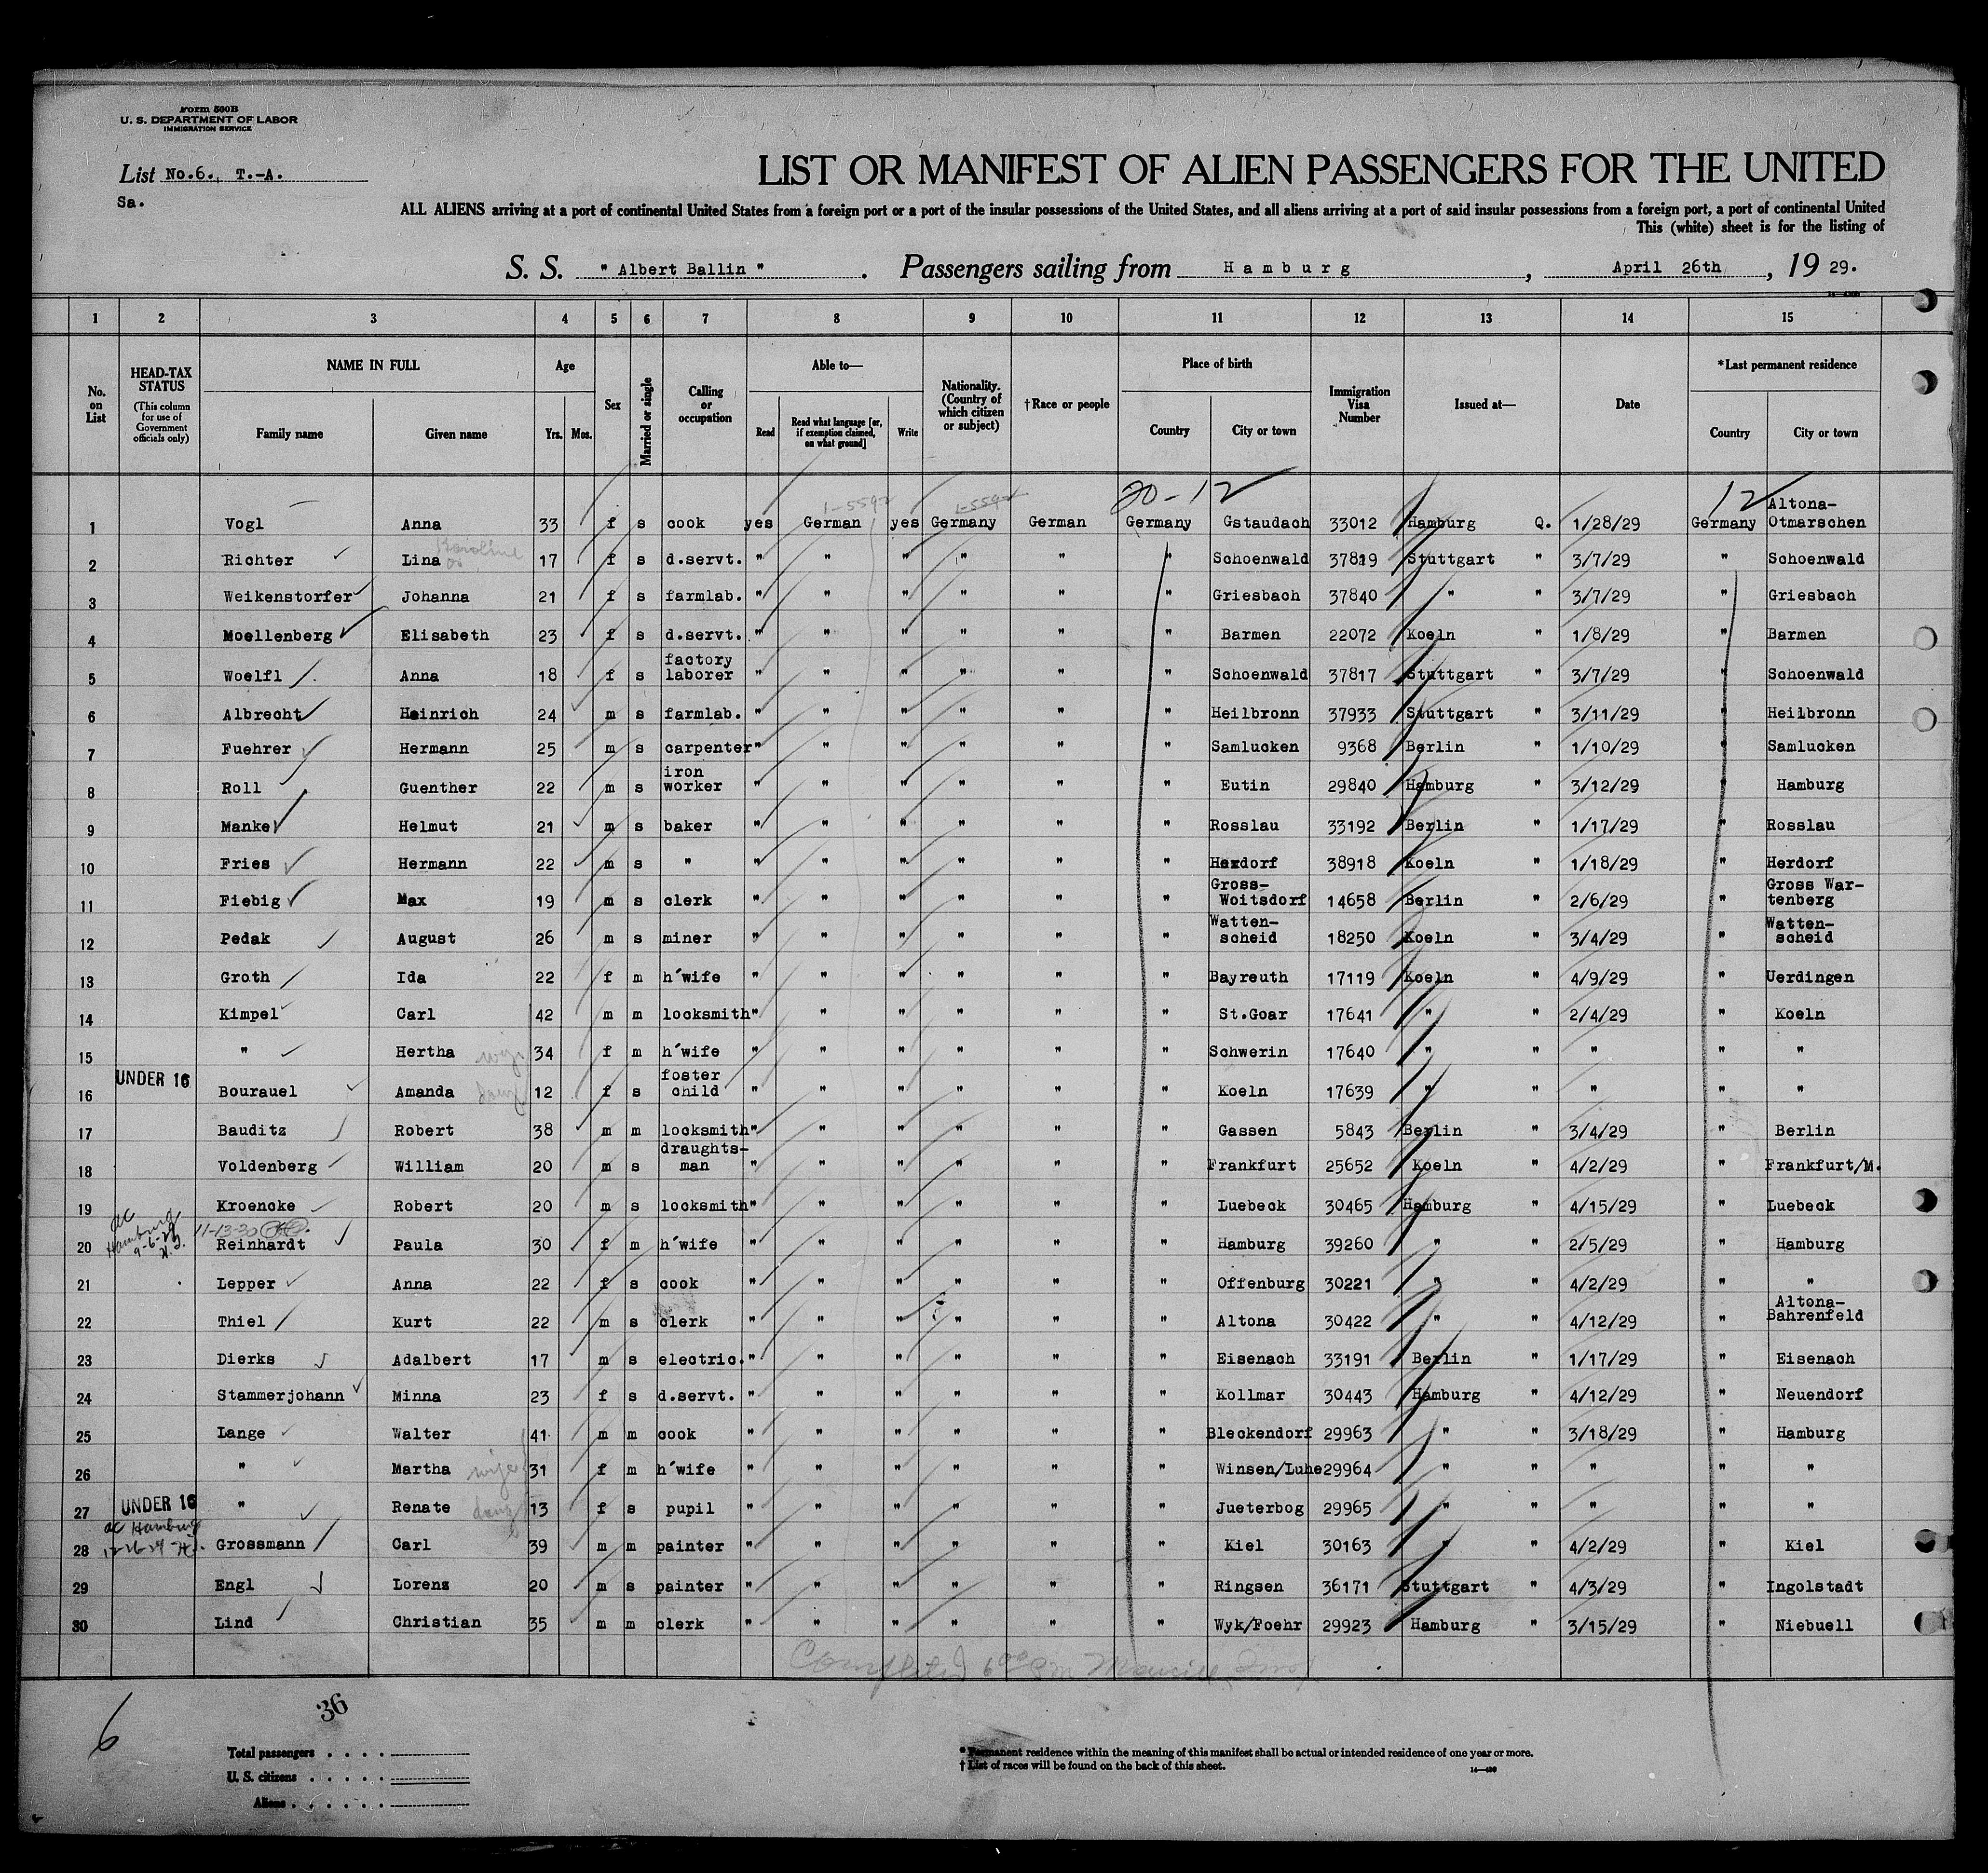 Form 500B
U. S. DEPARTMENT OF LABOR
IMMIGRATION SERVICE
List No.6., T.-A.
Sa.
LIST OR MANIFEST OF ALIEN PASSENGERS FOR THE UNITED
ALL ALIENS arriving at a port of continental United States from a foreign port or a port of the insular possessions of the United States, and all aliens arriving at a port of said insular possessions from a foreign port, a port of continental United
This (white) sheet is for the listing of
S. S. " Albert Ballin " . Passengers sailing from Hamburg , April 26th , 19 29.
1 2 3 4 5 6 7 8 9 10 11 12 13 14 15
No. on List
HEAD-TAX STATUS
(This column for use of Government officials only)
NAME IN FULL
Family name Given name
Age
Yrs. Mos.
Sex
Married or single
Calling or occupation
Able to—
Read
Read what language [or, if exemption claimed, on what ground]
Write
Nationality. (Country of which citizen or subject)
†Race or people
Place of birth
Country City or town
Immigration Visa Number
Issued at—
Date
*Last permanent residence
Country City or town
1-5592 1-5592 20-12 12
1 Vogl Anna 33 f s cook yes German yes Germany German Germany Gstaudach 33012 Hamburg Q. 1/28/29 Germany Altona-Otmarschen
2 Richter Lina Karoline 17 f s d.servt. " " " " " " Schoenwald 37819 Stuttgart " 3/7/29 " Schoenwald
3 Weikenstorfer Johanna 21 f s farmlab. " " " " " " Griesbach 37840 " " 3/7/29 " Griesbach
4 Moellenberg Elisabeth 23 f s d.servt. " " " " " " Barmen 22072 Koeln " 1/8/29 " Barmen
5 Woelfl Anna 18 f s factory laborer " " " " " " Schoenwald 37817 Stuttgart " 3/7/29 " Schoenwald
6 Albrecht Heinrich 24 m s farmlab. " " " " " " Heilbronn 37933 Stuttgart " 3/11/29 " Heilbronn
7 Fuehrer Hermann 25 m s carpenter " " " " " " Samlucken 9368 Berlin " 1/10/29 " Samlucken
8 Roll Guenther 22 m s iron worker " " " " " " Eutin 29840 Hamburg " 3/12/29 " Hamburg
9 Manke Helmut 21 m s baker " " " " " " Rosslau 33192 Berlin " 1/17/29 " Rosslau
10 Fries Hermann 22 m s " " " " " " " Herdorf 38918 Koeln " 1/18/29 " Herdorf
11 Fiebig Max 19 m s clerk " " " " " " Gross-Woitsdorf 14658 Berlin " 2/6/29 " Gross War-tenberg
12 Pedak August 26 m s miner " " " " " " Watten-scheid 18250 Koeln " 3/4/29 " Watten-scheid
13 Groth Ida 22 f m h'wife " " " " " " Bayreuth 17119 Koeln " 4/9/29 " Uerdingen
14 Kimpel Carl 42 m m locksmith " " " " " " St.Goar 17641 " " 2/4/29 " Koeln
15 " Hertha wife 34 f m h'wife " " " " " " Schwerin 17640 " " " " "
16 UNDER 16 Bourauel Amanda daug 12 f s foster child " " " " " " Koeln 17639 " " " " "
17 Bauditz Robert 38 m m locksmith " " " " " " Gassen 5843 Berlin " 3/4/29 " Berlin
18 Voldenberg William 20 m s draughts-man " " " " " " Frankfurt 25652 Koeln " 4/2/29 " Frankfurt/M.
19 Kroencke Robert 20 m s locksmith " " " " " " Luebeck 30465 Hamburg " 4/15/29 " Luebeck
Hamburg 11-13-30
20 Reinhardt Paula 30 f m h'wife " " " " " " Hamburg 39260 " " 2/5/29 " Hamburg
21 Lepper Anna 22 f s cook " " " " " " Offenburg 30221 " " 4/2/29 " "
22 Thiel Kurt 22 m s clerk " " " " " " Altona 30422 " " 4/12/29 " Altona-Bahrenfeld
23 Dierks Adalbert 17 m s electric. " " " " " " Eisenach 33191 Berlin " 1/17/29 " Eisenach
24 Stammerjohann Minna 23 f s d.servt. " " " " " " Kollmar 30443 Hamburg " 4/12/29 " Neuendorf
25 Lange Walter 41 m m cook " " " " " " Bleckendorf 29963 " " 3/18/29 " Hamburg
26 " Martha wife 31 f m h'wife " " " " " " Winsen/Luhe 29964 " " " " "
27 UNDER 16 " Renate daug 13 f s pupil " " " " " " Jueterbog 29965 " " " " "
Hamburg
28 Grossmann Carl 39 m m painter " " " " " " Kiel 30163 " " 4/2/29 " Kiel
29 Engl Lorenz 20 m s painter " " " " " " Ringsen 36171 Stuttgart " 4/3/29 " Ingolstadt
30 Lind Christian 35 m m clerk " " " " " " Wyk/Foehr 29923 Hamburg " 3/15/29 " Niebuell
6
36
Total passengers
U. S. citizens
Aliens
* Permanent residence within the meaning of this manifest shall be actual or intended residence of one year or more.
† List of races will be found on the back of this sheet.